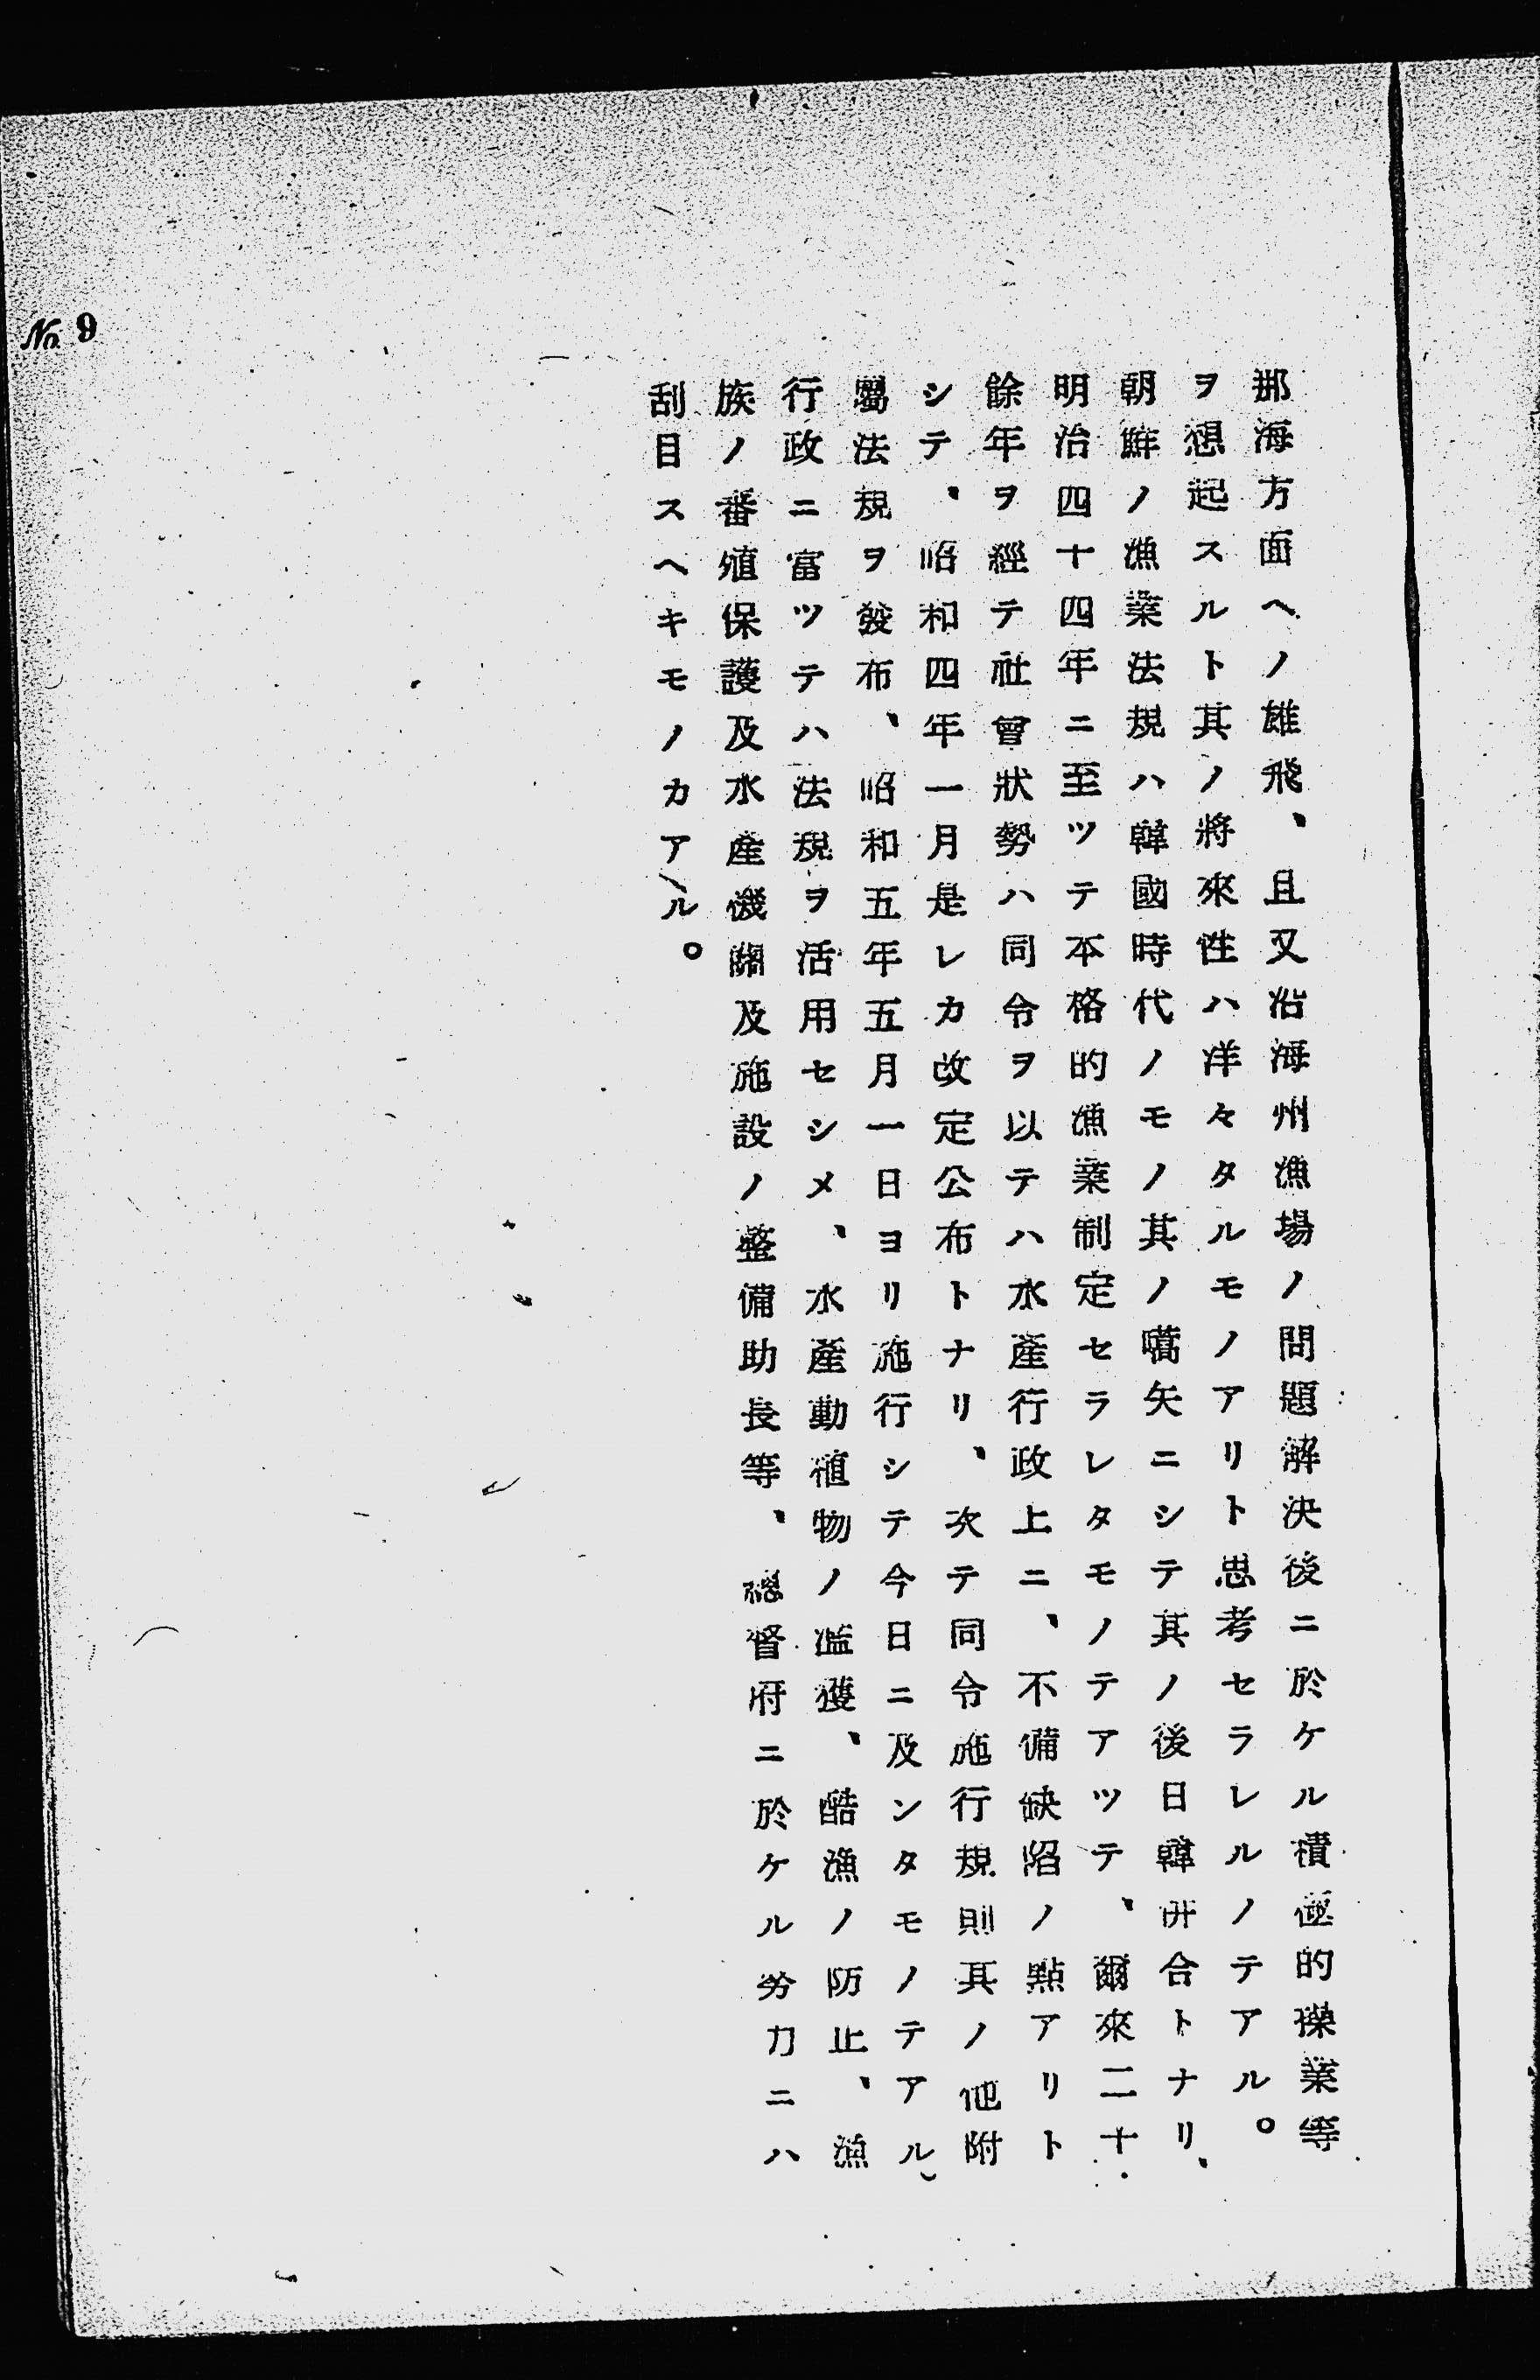 那海方面ヘノ雄飛、且又沿海州漁場ノ問題解決後ニ於ケル積極的操業等
ヲ想起スルト其ノ將來性ハ洋々タルモノアリト思考セラレルノテアル。
朝鮮ノ漁業法規ハ韓國時代ノモノ其ノ嚆矢ニシテ其ノ後日韓併合トナリ、
明治四十四年ニ至ツテ本格的漁業制定セラレタモノテアツテ、爾來二十
餘年ヲ經テ社會狀勢ハ同令ヲ以テハ水產行政上ニ、不備缺陷ノ點アリト
シテ、昭和四年一月是レカ改定公布トナリ、次テ同令施行規則其ノ他附
屬法規ヲ發布、昭和五年五月一日ヨリ施行シテ今日ニ及ンタモノテアル、
行政ニ富ツテハ法規ヲ活用セシメ、水產動植物ノ濫獲、酷漁ノ防止、漁
族ノ番殖保護及水產機關及施設ノ整備助長等、總督府ニ於ケル労力ニハ
刮目スヘキモノカアル。
No. 9